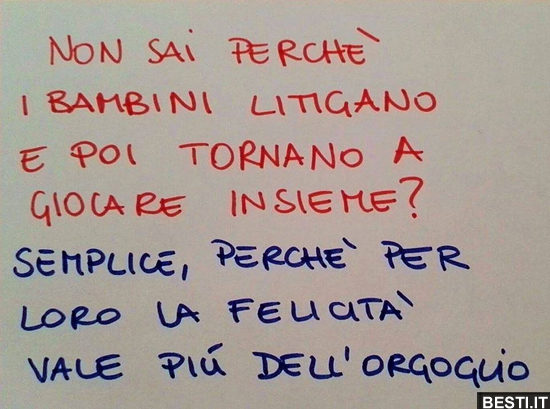 NON SAI PERCHÈ
I BAMBINI LITIGANO
E POI TORNANO A
GIOCARE INSIEME?
SEMPLICE, PERCHÈ PER
LORO LA FELICITÀ
VALE PIÚ DELL'ORGOGLIO
BESTI.IT